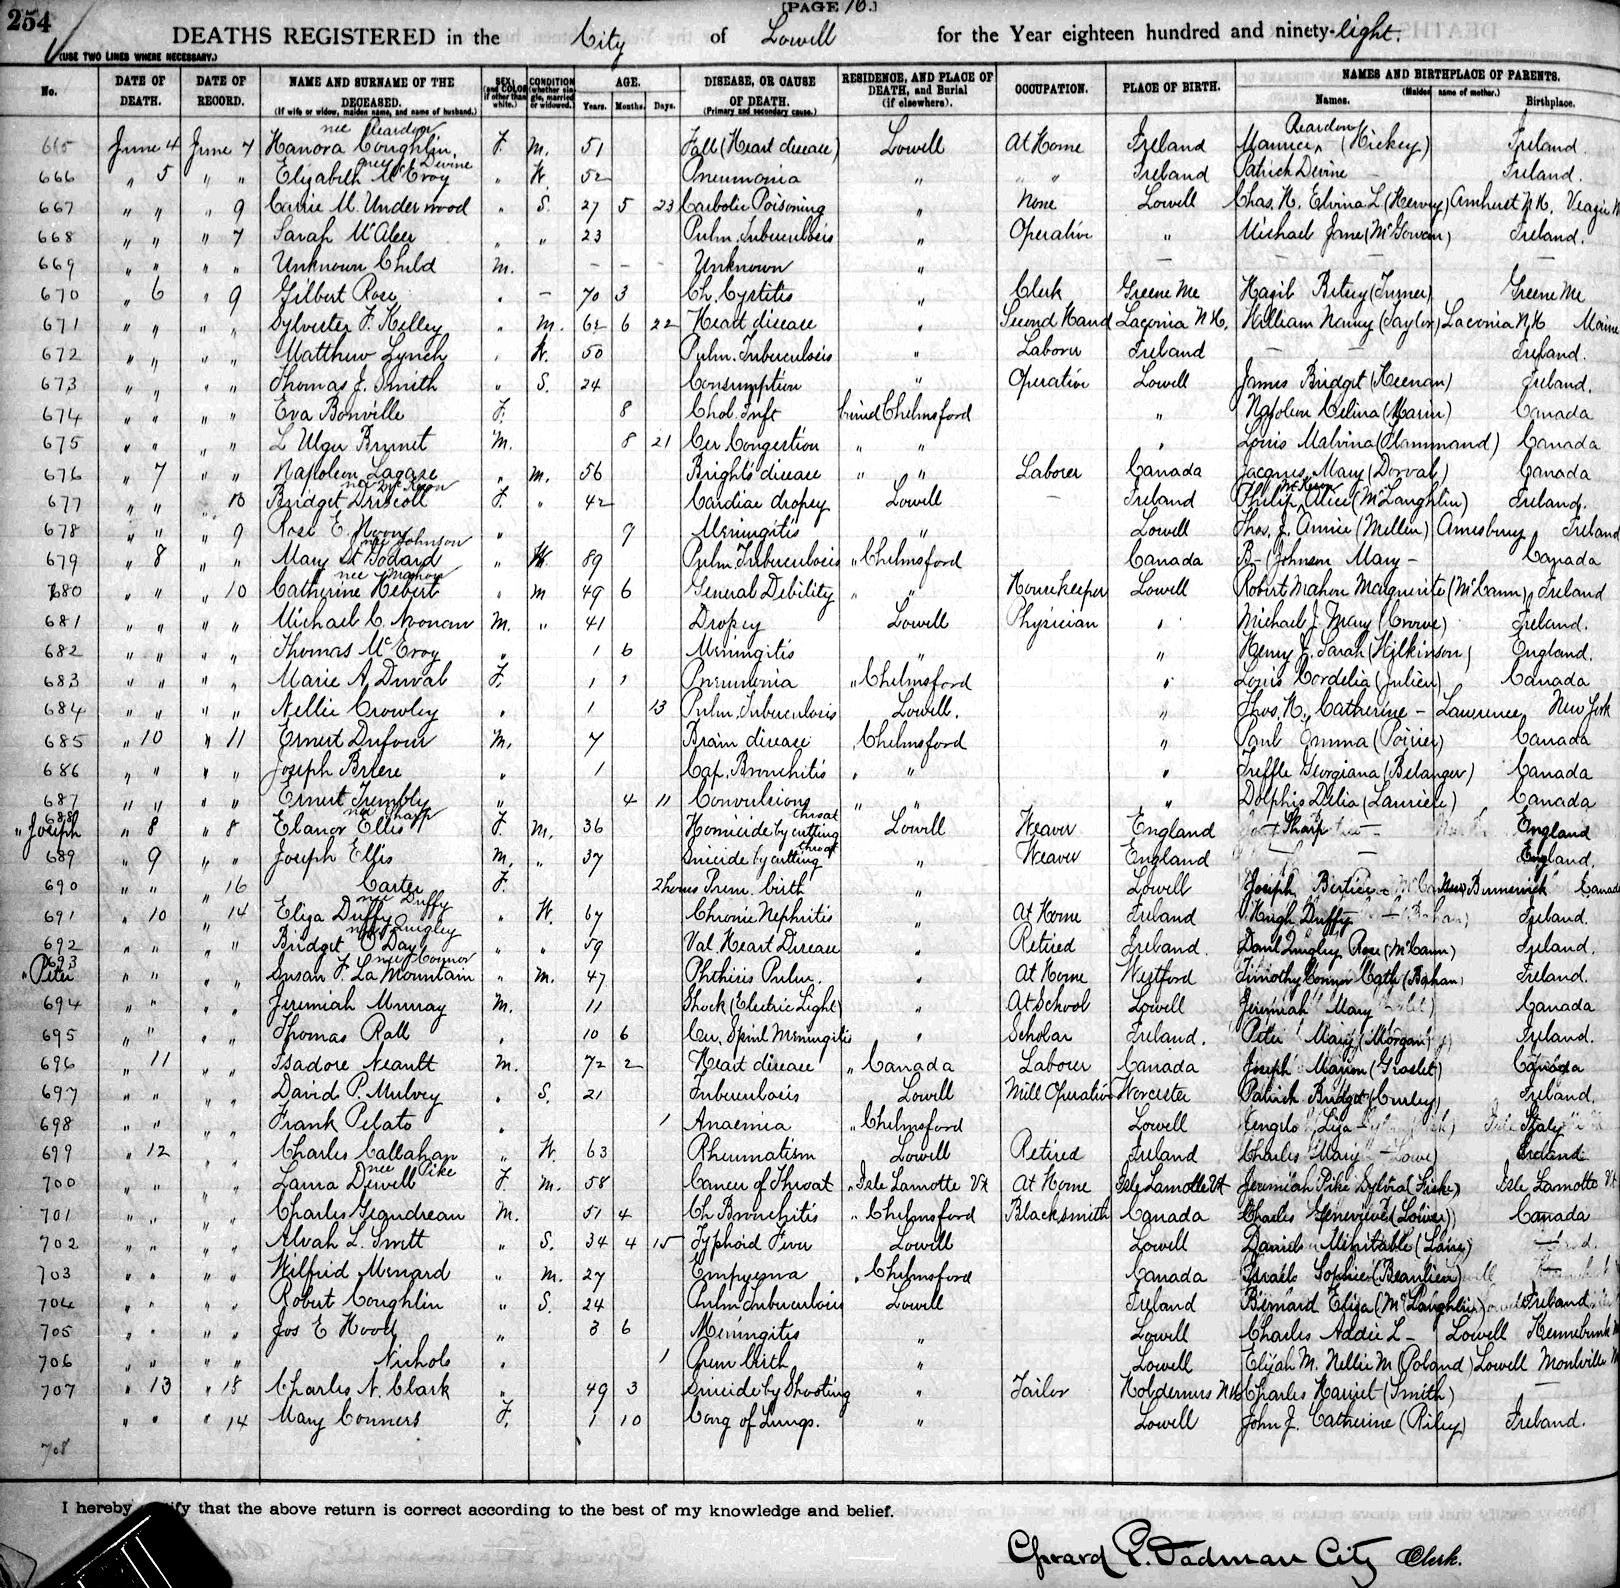 254
[PAGE 16.]
DEATHS REGISTERED in the City of Lowell for the Year eighteen hundred and ninety-eight.
(USE TWO LINES WHERE NECESSARY.)
No. DATE OF DEATH. DATE OF RECORD. NAME AND SURNAME OF THE DECEASED. (If wife or widow, maiden name, and name of husband.) SEX, and COLOR if other than white.) CONDITION (whether single, married or widowed.) AGE. Years. Months. Days. DISEASE, OR CAUSE OF DEATH. (Primary and secondary cause.) RESIDENCE, AND PLACE OF DEATH, and Burial (if elsewhere). OCCUPATION. PLACE OF BIRTH. NAMES AND BIRTHPLACE OF PARENTS. (Maiden name of mother.) Names. Birthplace.
nee Reardon
665 June 4 June 7 Hanora Coughlin F. M. 51 Fall (Heart disease) Lowell At Home Ireland Maurice Reardon (Hickey) Ireland.
nee Devine
666 " 5 " " Elizabeth McEvoy " W. 52 Pneumonia " " " Ireland Patrick Devine — Ireland.
667 " " " 9 Carrie M. Underwood " S. 27 5 23 Carbolic Poisoning " None Lowell Chas. H. Elvina L (Hervey) Amherst N.H.
668 " " " 7 Sarah McAleer " " 23 Pulm. Tuberculosis " Operative " Michael Jane (McGowan) Ireland.
669 " " " " Unknown Child M. — — — Unknown " — —
670 " 6 " 9 Gilbert Rose " — 70 3 Ch. Cystitis " Clerk Greene Me Betsey (Turner) Greene Me
671 " " " " Sylvester F. Kelley " M. 62 6 22 Heart disease " Second Hand Laconia N.H. William Nancy (Taylor) Laconia N.H Maine
672 " " " " Matthew Lynch " W. 50 Pulm. Tuberculosis " Laborer Ireland — — Ireland.
673 " " " " Thomas J. Smith " S. 24 Consumption " Operative Lowell James Bridget (Keenan) Ireland.
674 " " " " Eva Bonville F. 8 Chol. Inft Chelmsford " Napoleon Celina (Marin) Canada
675 " " " " L Ulger Brunet M. 8 21 Cer Congestion " " " Louis Malvina (Hammand) Canada
676 " 7 " " Napoleon Lagase " M. 56 Bright's disease " " Laborer Canada Jacques Mary (Dorval) Canada
677 " " " 13 Bridget Driscoll F. " 42 Cardiac dropsy Lowell — Ireland Philip Alice (McLaughlin) Ireland.
678 " " " 9 Rose E. Noon " 9 Meningitis " Lowell Thos. J. Annie (Mellen) Amesbury Ireland
nee Johnson
679 " 8 " " Mary St Godard " W. 89 Pulm. Tuberculosis " Chelmsford Canada B— (Johnson Mary — Canada
nee Mahon
680 " " " 10 Catherine Hebert " M 49 6 General Debility " " Housekeeper Lowell Robert Mahon Marguerite (McCann) Ireland
681 " " " " Michael C. Noonan M. " 41 Dropsy Lowell Physician " Michael J. Mary (Crowe) Ireland.
682 " " " " Thomas McEvoy " 1 6 Meningitis " " Henry E. Sarah (Wilkinson) England.
683 " " " " Marie A. Duval F. 1 1 Pneumonia " Chelmsford " Louis Cordelia (Julien) Canada
684 " " " " Nellie Crowley " 1 13 Pulm. Tuberculosis Lowell. " Thos. H., Catherine — Lawrence New York
685 " 10 " 11 Ernest Dufour M. 7 Brain disease " Chelmsford " Paul Emma (Poirier) Canada
686 " " " " Joseph Briere " 1 Cap. Bronchitis " " " Treffle Georgiana (Belanger) Canada
687 " " " " Ernest Trembly " 4 11 Convulsions " " " Dolphis Delia (Lauriere) Canada
688 nee Sharp
" Joseph " 8 " 8 Elanor Ellis F. M. 36 Homicide by cutting throat Lowell Weaver England Sharp — England
689 " 9 " " Joseph Ellis M. " 37 Suicide by cutting throat " Weaver England — England.
690 " " " 16 Carter F. 2 hours Prem. birth " Lowell Joseph Bertie New Brunswick Canada
nee Duffy
691 " 10 " 14 Eliza Duffy " W. 67 Chronic Nephritis " At Home Ireland Hugh Duffy — Ireland.
nee Quigley
692 " " " " Bridget O'Day " " 59 Val. Heart Disease " Retired Ireland. Danl Quigley Rose (McCann) Ireland.
693 nee Connor
" Peter " " " " Susan F. LaMountain " M. 47 Phthisis Pulm. " At Home Westford Timothy Connor Cath (Bahan) Ireland.
694 " " " " Jeremiah Murray M. 11 Shock (Electric Light) " At School Lowell Jeremiah Mary Canada
695 " " " " Thomas Rall " 10 6 Cer. Spinl Meningitis " Scholar Ireland. Peter Mary (Morgan) Ireland.
696 " 11 " " Isadore Neault M. 72 2 Heart disease " Canada Laborer Canada Joseph Marion Canada
697 " " " " David P. Mulvey " S. 21 Tuberculosis Lowell Mill Operative Worcester Patrick Bridget (Curley) Ireland.
698 " " " " Frank Pelato " 1 Anaemia " Chelmsford Lowell Liza — Italy
699 " 12 " " Charles Callahan " W. 63 Rheumatism Lowell Retired Ireland Charles Mary Ireland
nee Pike
700 " " " " Laura Dewell F. M. 58 Cancer of Throat " Isle Lamotte Vt At Home Isle Lamotte Vt Jeremiah Pike Sylvia (Fiske) Isle Lamotte Vt
701 " " " " Charles Geaudreau M. 51 4 Ch Bronchitis " Chelmsford Blacksmith Canada Charles Genevieve Canada
702 " " " " Alvah L. Swett " S. 34 4 15 Typhoid Fever Lowell Lowell Daniel Mehitable (Lane) —
703 " " " " Wilfrid Menard " M. 27 Empyema " Chelmsford Canada Israel Sophie (Beaulieu) —
704 " " " " Robert Coughlin " S. 24 Pulm Tuberculosis Lowell Ireland Bernard Eliza (McLaughlin) Ireland
705 " " " " Jos E Hood " 3 6 Meningitis " Lowell Charles Addie L — Lowell Kennebunk
706 " " " " Nichols " 1 Prem birth " Lowell Elijah M. Nellie M (Poland) Lowell Montville
707 " 13 " 18 Charles N. Clark " 49 3 Suicide by Shooting " Tailor Holderness N.H. Charles Harriet (Smith) —
" " " 14 Mary Conners F. 1 10 Cong of Lungs. " Lowell John J. Catherine (Riley) Ireland.
708
I hereby certify that the above return is correct according to the best of my knowledge and belief.
Girard P. Dadman City Clerk.